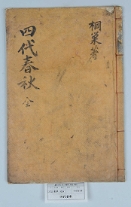 桐巢著
四代春秋 全